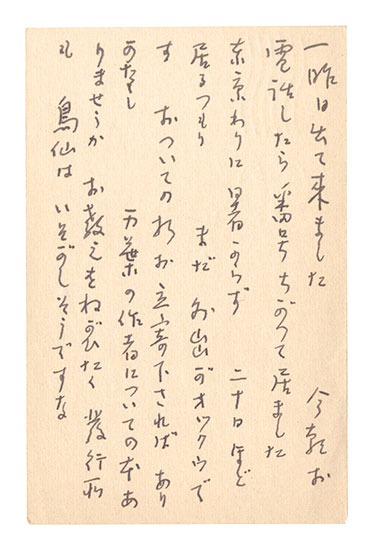 一昨日出て来ました 今朝お
電話したら番号ちがつて居ました
東京わりに暑からず 二十日ほど
居るつもり まだ 外出がオツクウで
す おついでの折お立寄下されば あり
がたし 万葉の作者についての本あ
りませうか お教えをねがひたく 發行所
も 鳥仙はいそがしそうですな